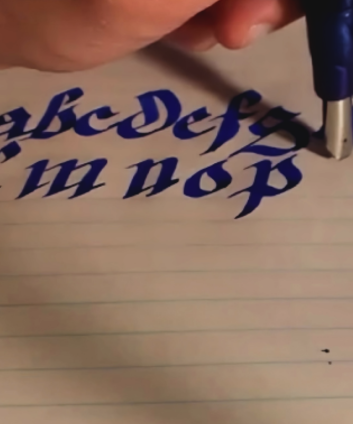 abcdefg
m n o p